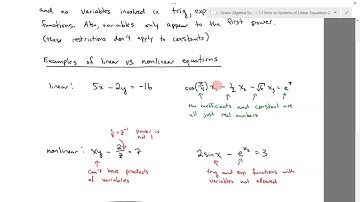 Linear Algebra Su... - C I Intro to Systems of Linear Equations 2
and no variables involved in trig, exp
functions. Also, variables only appear to the first power.
(these restrictions don't apply to constants)
Examples of linear vs. nonlinear equations
linear: 5x - 2y = -16
cos(π/4) x₁ - 1/2 x₂ - √6 x₃ = e^π
the coefficients and constant are
all just real numbers
1/z = z⁻¹ power is
not 1
nonlinear: xy - 2/z = 7
2 sin x₁ - e^x₂ = 3
can't have products
of variables
trig and exp functions with
variables not allowed